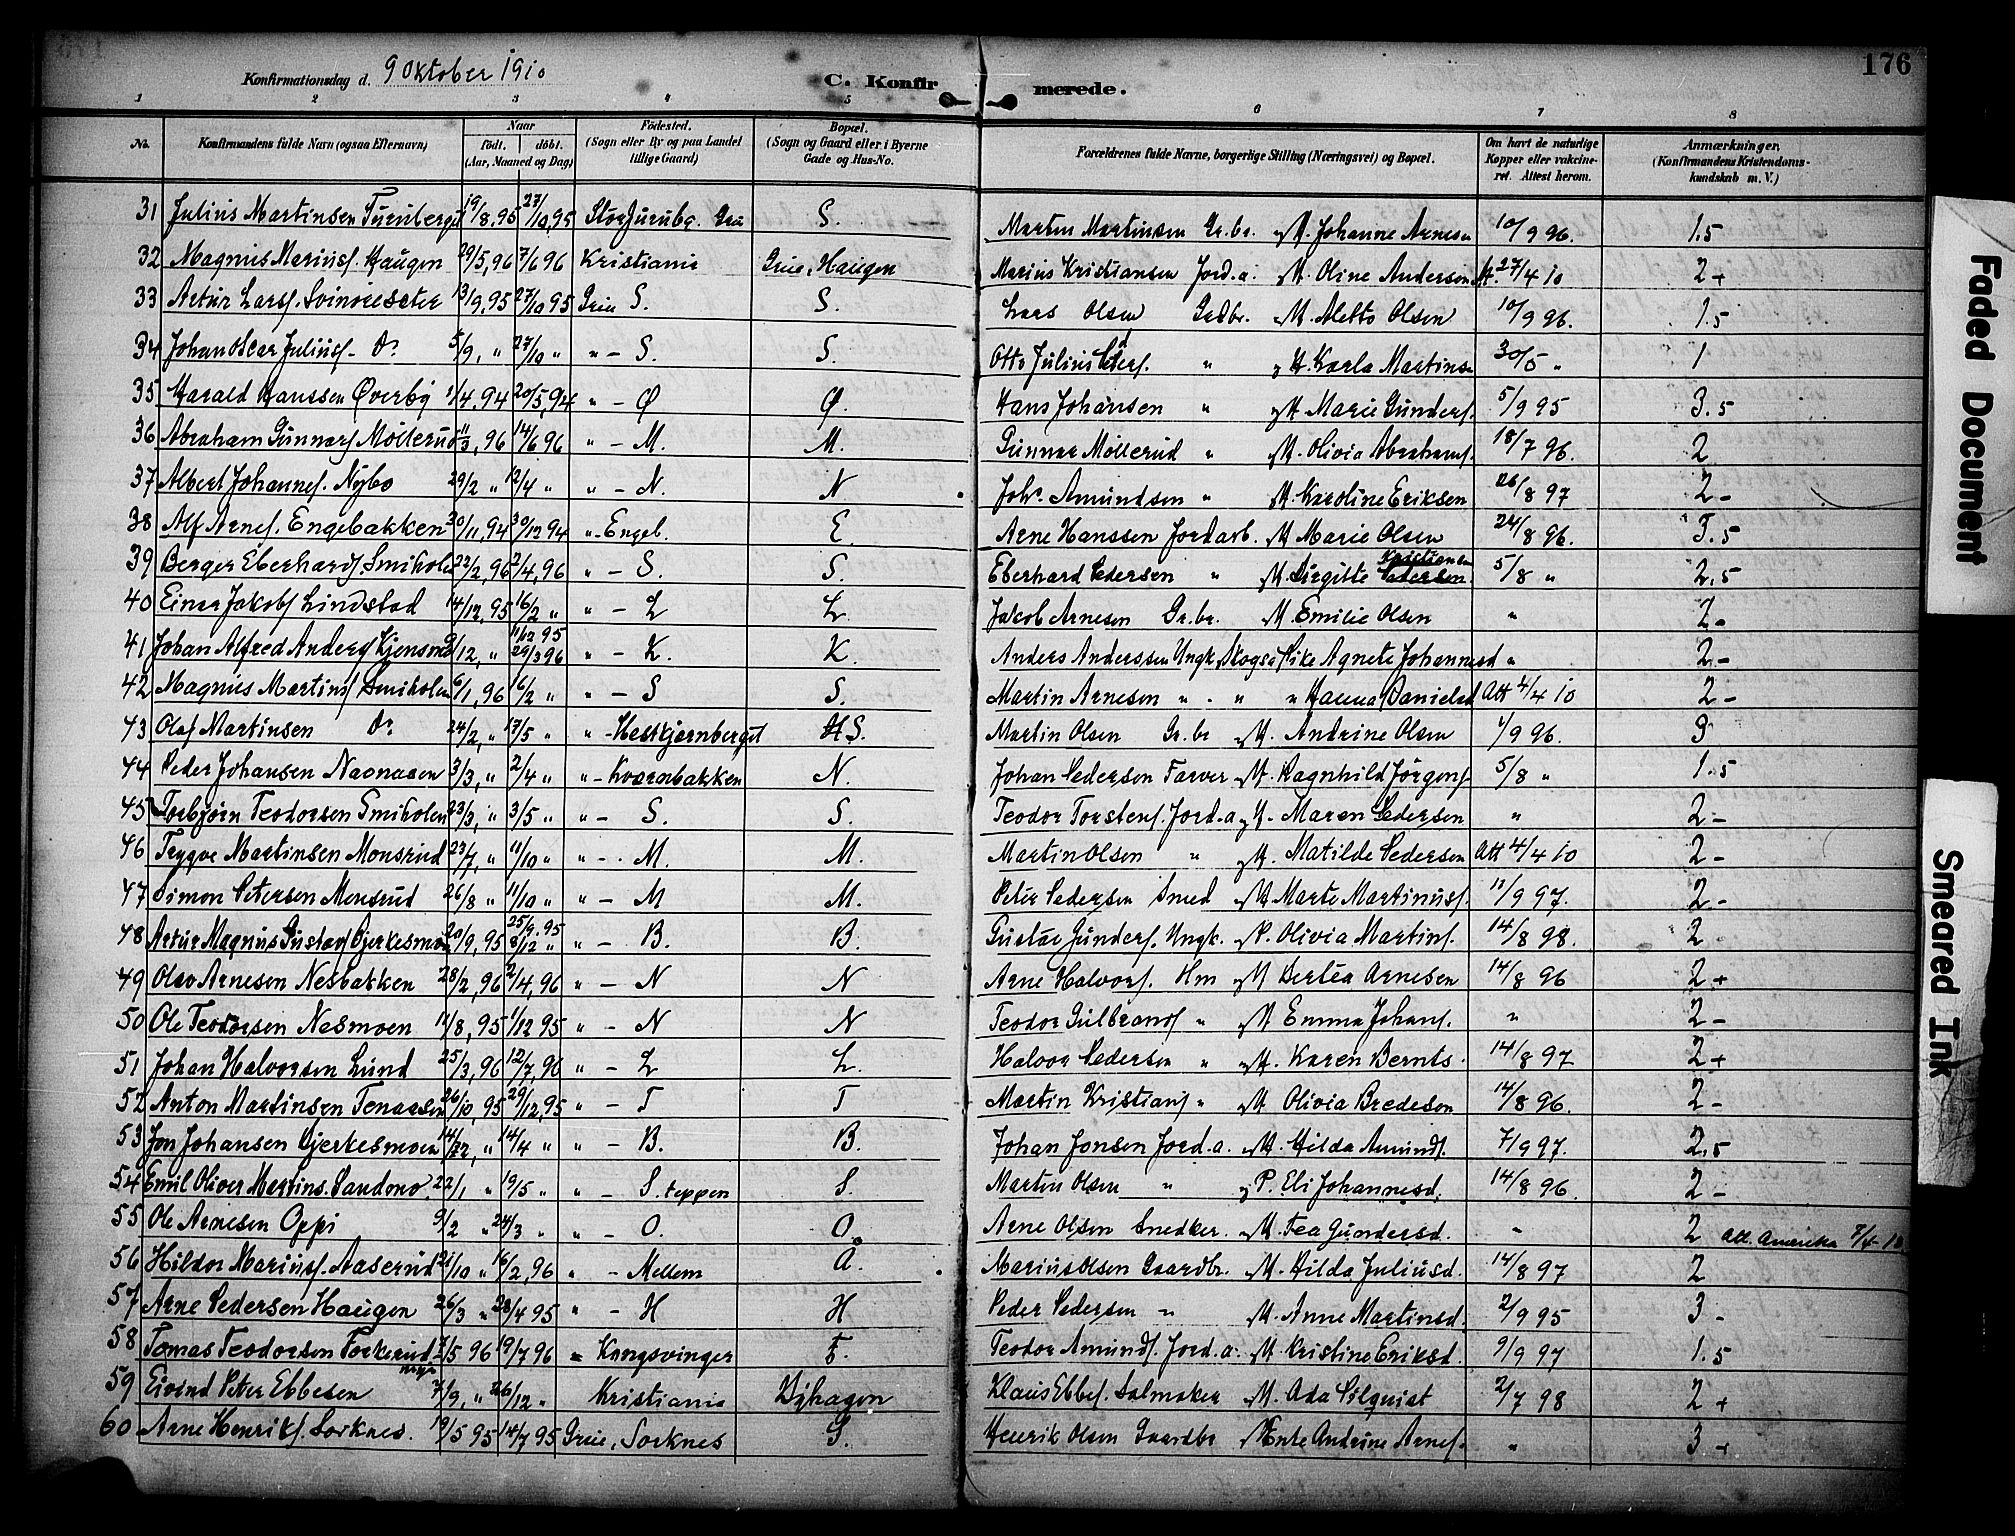 176
Konfirmationsdag d. 9 Oktober 1910 C. Konfirmerede.
1 2 3 4 5 6 7 8
No. Konfirmandens fulde Navn (ogsaa Efternavn) Naar født. døbt. (Aar, Maaned og Dag) Fødested. (Sogn eller By og paa Landet tillige Gaard) Bopæl. (Sogn og Gaard eller i Byerne Gade og Hus-No. Forældrenes fulde Navne, borgerlige Stilling (Næringsvei) og Bopæl. Om havt de naturlige Kopper eller vakcineret. Attest herom. Anmærkninger. (Konfirmandens Kristendomskundskab m. V.)
31 Julius Martinsen 19/8, 95 27/10, 95 S. Martin Martinsen Gr.br. M. Johanne Arnesen 10/9 96. 1.5
32 Magnus Mariuss. Haugen 29/5, 96 7/6 96 Kristiania Grue, Haugen Marius Kristiansen Jord.a. M. Oline Andersen 27/4 10 2+
33 Artur Larss. 13/9, 95 27/10 95 Grue S. S. Lars Olsen Grdbr. M. Olsen 10/9 96. 1.5
34 Johan Oscar Juliuss. Do 5/9, " 27/10 " " - S. S. Otto Julius " M. Karla Martinsen 30/5 " 1
35 Harald Hanssen Øverby 1/4, 94 20/5, 94 " - Ø Ø. Hans Johansen " M. Marie Gunders. 5/9 95 3.5
36 Abraham Gunnars. Møllerud 11/3, 96 14/6 96 " - M. M. Gunnar Møllerud " M. Olivia Abrahams. 18/7 96. 2
37 Albert Johanness. Nybo 29/2 " 12/4 " " - N. N Johs. Amundsen " M. Karoline Eriksen 26/8 97 2-
38 Alf Arnes. Engebakken 30/11, 94 30/12 94 " - Engeb. E. Arne Hanssen Jordarb. M Marie Olsen 24/8 96. 3.5
39 Berger Eberhards. Smiholen 22/2, 96 2/4, 96 " - S. S. Eberhard Pedersen " M. Birgitte Kristiansen Pedersen. 5/8 " 2.5
40 Einar Jakobs. Lindstad 14/12, 95 16/2 " " - L L. Jakob Arnesen Gr.br. M. Emilie Olsen " 2-
41 Johan Alfred Anders. 9/12, " 11/12 95 29/3 96 " - K. K. Anders Anderssen Ungk. Skogsa. Pike Agnete Johannesd " 2-
42 Magnus Martins. Smiholen 6/1, 96 16/2 " " - S S. Martin Arnesen " . " " Hanna Danielsd Att 4/4 10 2-
43 Olaf Martinsen Do 24/2, " 17/5 " " - Hestkjernberget HS. Martin Olsen Gr.br M. Andrine Olsen 1/9 96. 3
44 Peder Johansen Nasnasen 3/3, " 2/4 " " - Kvernbakken N. Johan Pedersen Farver M. Ragnhild Jørgens. 5/8 " 1.5
45 Torbjørn Teodorsen Smiholen 23/3, " 3/5 " " - S. S. Teodor Torstens. Jord.a M. Maren Pedersen " 2-
46 Trygve Martinsen Monsrud 23/7, " 11/10 " " - M. M. Martin Olsen " M. Matilde Pedersen Att 4/4 10 2-
47 Simon Petersen Monsrud 26/8 " 11/10 " " - M M. Peter Pedersen Smed M Marte Martinuss. 11/9 97. 2-
48 Artur Magnus Gustavs. Bjerkesmoen 20/9, 95 25/9. 95 8/12 " " - B. B. Gustav Gunders. Ungk. P. Olivia Martins. 14/8 98. 2-
49 Olav Arnesen Nesbakken 28/2, 96 2/4, 96 " - N N Arne Halvors. Hm M Bertea Arnesen 14/8 96 2+
50 Ole Teodorsen Nesmoen 14/8, 95 1/12 95 " - N N Teodor Gulbrands. " M Emma Johans. " 2-
51 Johan Halvorsen Lund 25/3, 96 12/7, 96 " - L L. Halvor Pedersen " M. Karen Bernts. 14/8 97 2+
52 Anton Martinsen Tenaasen 26/10, 95 29/12, 95 " - T T Martin Kristians. " M. Olivia Bredesen 14/8 96. 2-
53 Jon Johansen Bjerkesmoen 14/4 " " - B. B. Johan Jonsen Jord.a. M. Hilda Amunds. 7/9 97. 2.5
54 Emil Oliver Martins. 22/1 " 19/5 " " - S. teppen S. Martin Olsen " P. Eli Johannesd. 14/8 96. 2-
55 Ole Arnesen Oppi 9/2 " 24/3 " " - O. O. Arne Olsen Snedker. M. Tea Gundersd. " 2 Att. Amerika 7/4 10
56 Hildor Mariuss. Aaserud 21/10 " 16/2, 96 " - Mellem A. Marius Olsen Gaardbr. M. Hilda Juliusd. 14/8 97 2
57 Arne Pedersen Haugen 26/3 " 28/4 95 " - H H Peder Pedersen " M. Anne Martinsd. 2/9 95 3-
58 Tomas Teodorsen Torkerud 7/5 96 19/7 96 " Kongsvinger T. Teodor Amunds. Jord.a. M. Kristine Eriksd. 9/9 97 1.5
59 Eivind Peter Ebbesen 7/9, " 26/12 " Kristiania Dyhagen Klaus Ebbes. Salmaker M. Ada 2/7 98 2+
60 Arne Henriks. Sorknes. 19/5 95 14/7 95 Grue, Sorknes S. Henrik Olsen Gaardbr M Andrine Arnes. " 3+
Faded Document
Smeared Ink